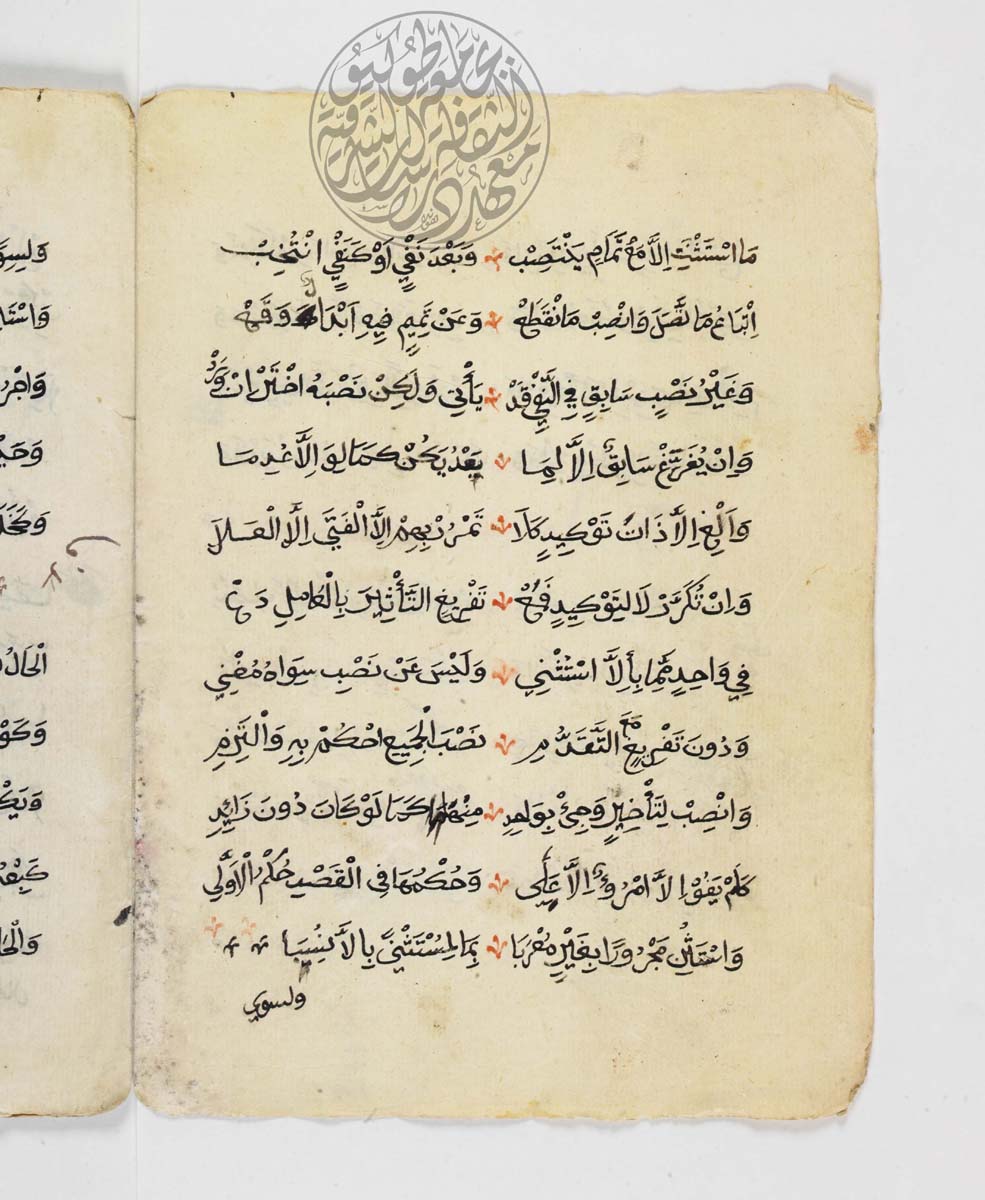 جامعة طوكيو
معهد الثقافة والدراسات الشرقية
مَا اسْتَثْنَتِ الَّا مَعْ تَمَامٍ يَنْتَصِبْ وَبَعْدَ نَفْيٍ اَوْ كَنَفْيٍ انْتُخِبْ
اِتْبَاعُ مَا اتَّصَلَ وَانْصِبْ مَا انْقَطَعْ وَعَنْ تَمِيمٍ فِيهِ اَبْدَالٌ وَقَعْ
وَغَيْرُ نَصْبٍ سَابِقٍ فِي النَّفْيِ قَدْ يَأْتِي وَلَكِنْ نَصْبَهُ اخْتَرْ اِنْ وَرَدْ
وَاِنْ يُفَرَّغْ سَابِقٌ اِلَّا لِمَا بَعْدُ يَكُنْ كَمَا لَوِ الَّا عُدِمَا
وَاَلْغِ اِلَّا ذَاتَ تَوْكِيدٍ كَلَا تَمْرُرْ بِهِمْ اِلَّا الْفَتَى اِلَّا الْعَلَا
وَاِنْ تُكَرَّرْ لَا لِتَوْكِيدٍ فَمَعْ تَفْرِيغٍ التَّأْثِيرَ بِالْعَامِلِ دَعْ
فِي وَاحِدٍ مِمَّا بِأِلَّا اسْتُثْنِي وَلَيْسَ عَنْ نَصْبِ سِوَاهُ مُغْنِي
وَدُونَ تَفْرِيغٍ مَعَ التَّقَدُّمِ نَصْبَ الْجَمِيعِ احْكُمْ بِهِ وَالْتَزِمِ
وَانْصِبْ لِتَأْخِيرٍ وَجِئْ بِوَاحِدِ مِنْهَا كَمَا لَوْ كَانَ دُونَ زَائِدِ
كَلَمْ يَفُوْا اِلَّا امْرُؤٌ اِلَّا عَلِي وَحُكْمُهَا فِي الْقَصْدِ حُكْمُ الْاَوَّلِي
وَاسْتَثْنِ مَجْرُورًا بِغَيْرٍ مُعْرَبَا بِمَا لِمُسْتَثْنًى بِالَّا نُسِبَا
ولسوي